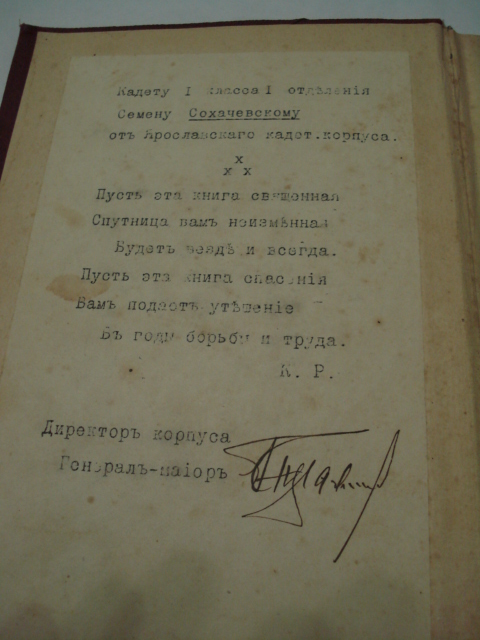 Кадету I класса I отдѣленія
Семену Сохачевскому
отъ Ярославскаго кадет.корпуса.
х
х х
Пусть эта книга священная
Спутница вамъ неизмѣнная
Будетъ вездѣ и всегда.
Пусть эта книга спасенія
Вамъ подастъ утѣшеніе
Въ годы борьбы и труда.
К. Р.
Директоръ корпуса
Генералъ-маіоръ